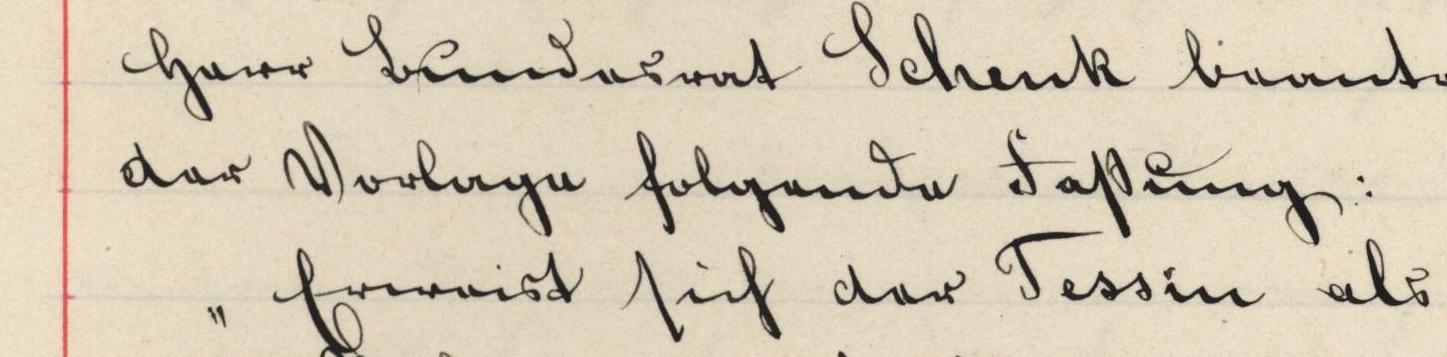 Herr Bundesrat Schenk beant
der Vorlage folgende Faßung:
„Erweist sich der Tessin als